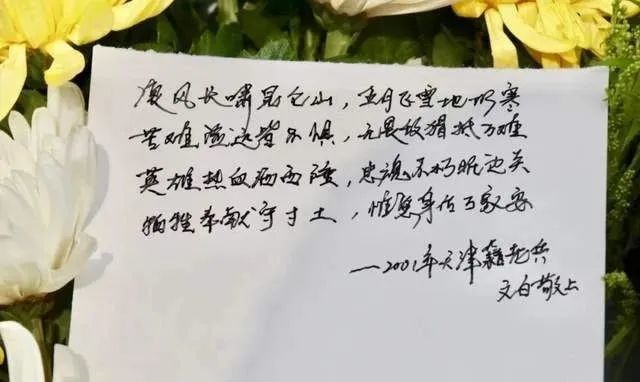 风长啸昆仑山，五月飞雪地仍寒
苦难皆不惧，无畏敌猖抵万难
英雄热血洒西陲，忠魂不朽眠边关
牺牲奉献守寸土，惟愿身后万家安
——2001年天津籍老兵
文白敬上